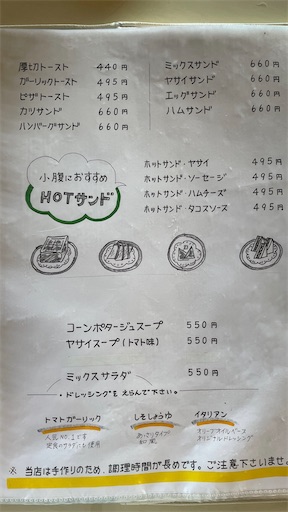 厚切トースト 440円
ガーリックトースト 495円
ピザトースト 495円
カツサンド 660円
ハンバーグサンド 660円
ミックスサンド 660円
ヤサイサンド 660円
エッグサンド 660円
ハムサンド 660円
小腹におすすめ
HOTサンド
ホットサンド・ヤサイ 495円
ホットサンド・ソーセージ 495円
ホットサンド・ハムチーズ 495円
ホットサンド・タコスソース 495円
コーンポタージュスープ 550円
ヤサイスープ(トマト味) 550円
ミックスサラダ 550円
・ドレッシングをえらんで下さい。
トマトガーリック
人気NO.1です
定食のサラダにも使用
しそしょうゆ
あっさりタイプ
和風
イタリアン
オリーブオイルベース
オリジナルドレッシング
※ 当店は手作りのため、調理時間が長めです。ご注意下さいませ。